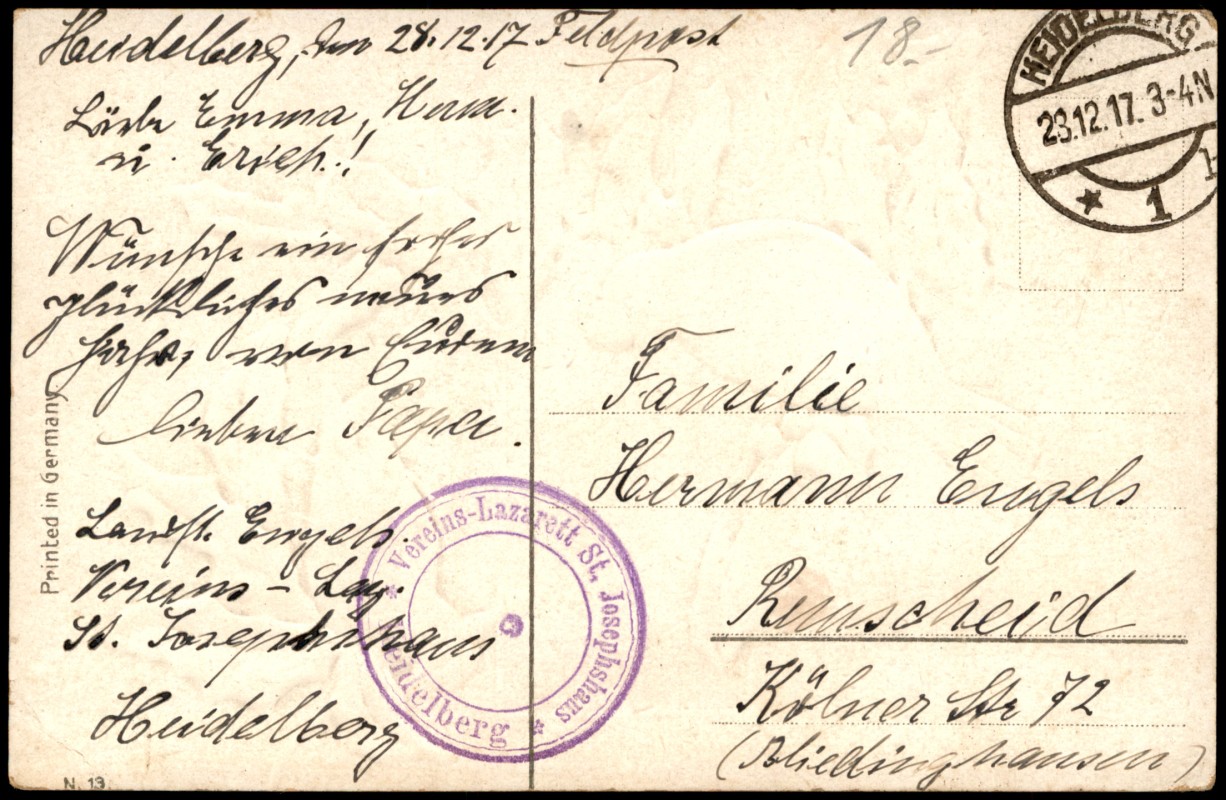 Heidelberg, den 28.12.17 Feldpost
18.-
HEIDELBERG
28.12.17. 3-4N
* 1
Liebe Emma, Herm.
u. Erich.!
Wünsche ein frohes
glückliches neues
Jahr, von Eurem
lieben Papa.
Landst. Engels.
Vereins-Laz.
St. Josephshaus
Heidelberg
* Vereins-Lazarett St. Josephshaus *
Heidelberg
Familie
Hermann Engels
Remscheid
Kölner Str 72
(Bliedinghausen)
Printed in Germany
N. 13